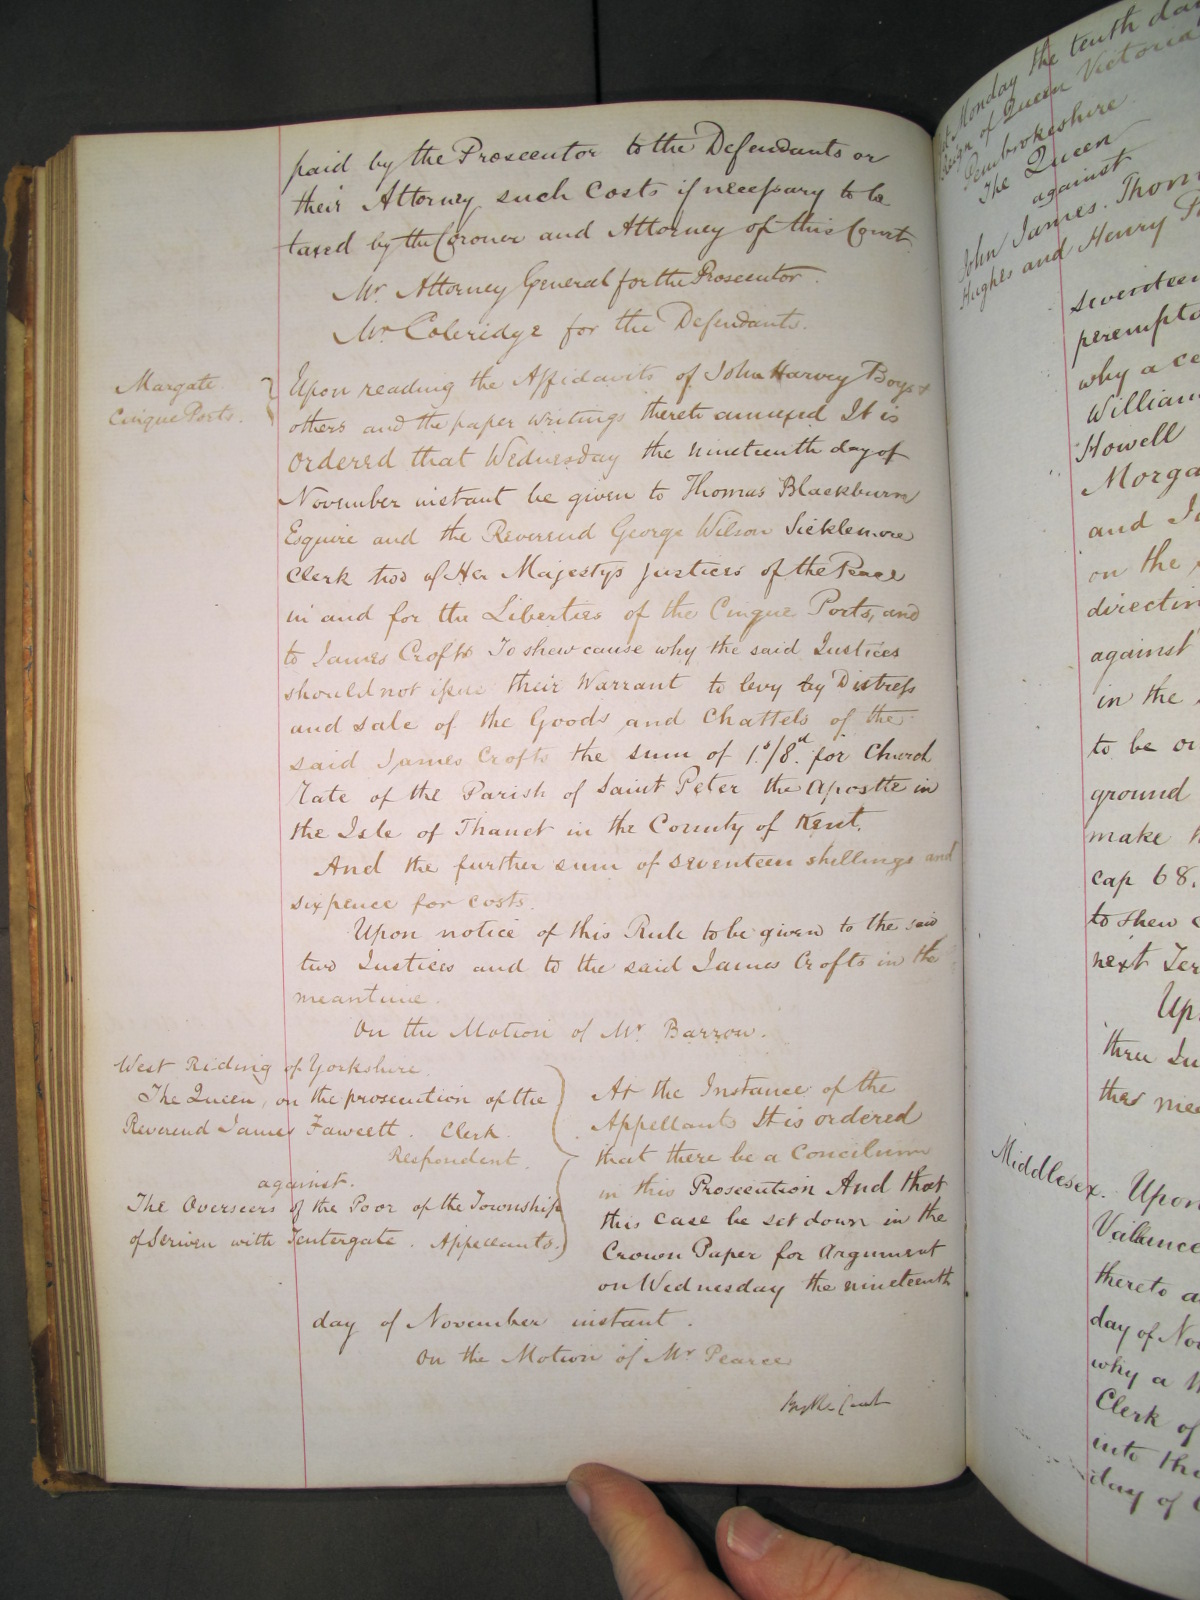 paid by the Prosecutor to the Defendants or
their Attorney such Costs if necessary to be
taxed by the Coroner and Attorney of this Court
Mr. Attorney General for the Prosecutor.
Mr. Coleridge for the Defendants.
Margate
Cinque Ports.
Upon reading the Affidavits of John Harvey Boys &
others and the paper writings thereto annexed It is
ordered that Wednesday the nineteenth day of
November instant be given to Thomas Blackburn
Esquire and the Reverend George Wilson Sicklemore
Clerk two of Her Majestys Justices of the Peace
in and for the Liberties of the Cinque Ports, and
to James Crofts To shew cause why the said Justices
should not issue their Warrant to levy by Distress
and sale of the Goods and Chattels of the
said James Crofts the sum of 1s/8d. for Church
Rate of the Parish of Saint Peter the Apostle in
the Isle of Thanet in the County of Kent.
And the further sum of seventeen shillings and
sixpence for costs.
Upon notice of this Rule to be given to the said
two Justices and to the said James Crofts in the
meantime.
On the Motion of Mr Barrow.
West Riding of Yorkshire
The Queen, on the prosecution of the
Reverend James Fawcett. Clerk
Respondent.
against.
The Overseers of the Poor of the Township
of Scriven with Tentergate. Appellants.
At the Instance of the
Appellants It is ordered
that there be a Concilium
in this Prosecution And that
this case be set down in the
Crown Paper for Argument
on Wednesday the nineteenth
day of November instant.
On the Motion of Mr Pearce
By the Court
Monday the tenth day
Reign of Queen Victoria
Pembrokeshire
The Queen
against
John James. Thom
Hughes and Henry
seventeen
perempto
why a ce
William
Howell
Morga
and
on the
directin
against
in the
to be or
ground
make
cap 68.
to shew
next Ter
Up
thre
the mea
Middlesex. Upon
Vallance
thereto a
day of Nov
why a
Clerk of
into the
day of